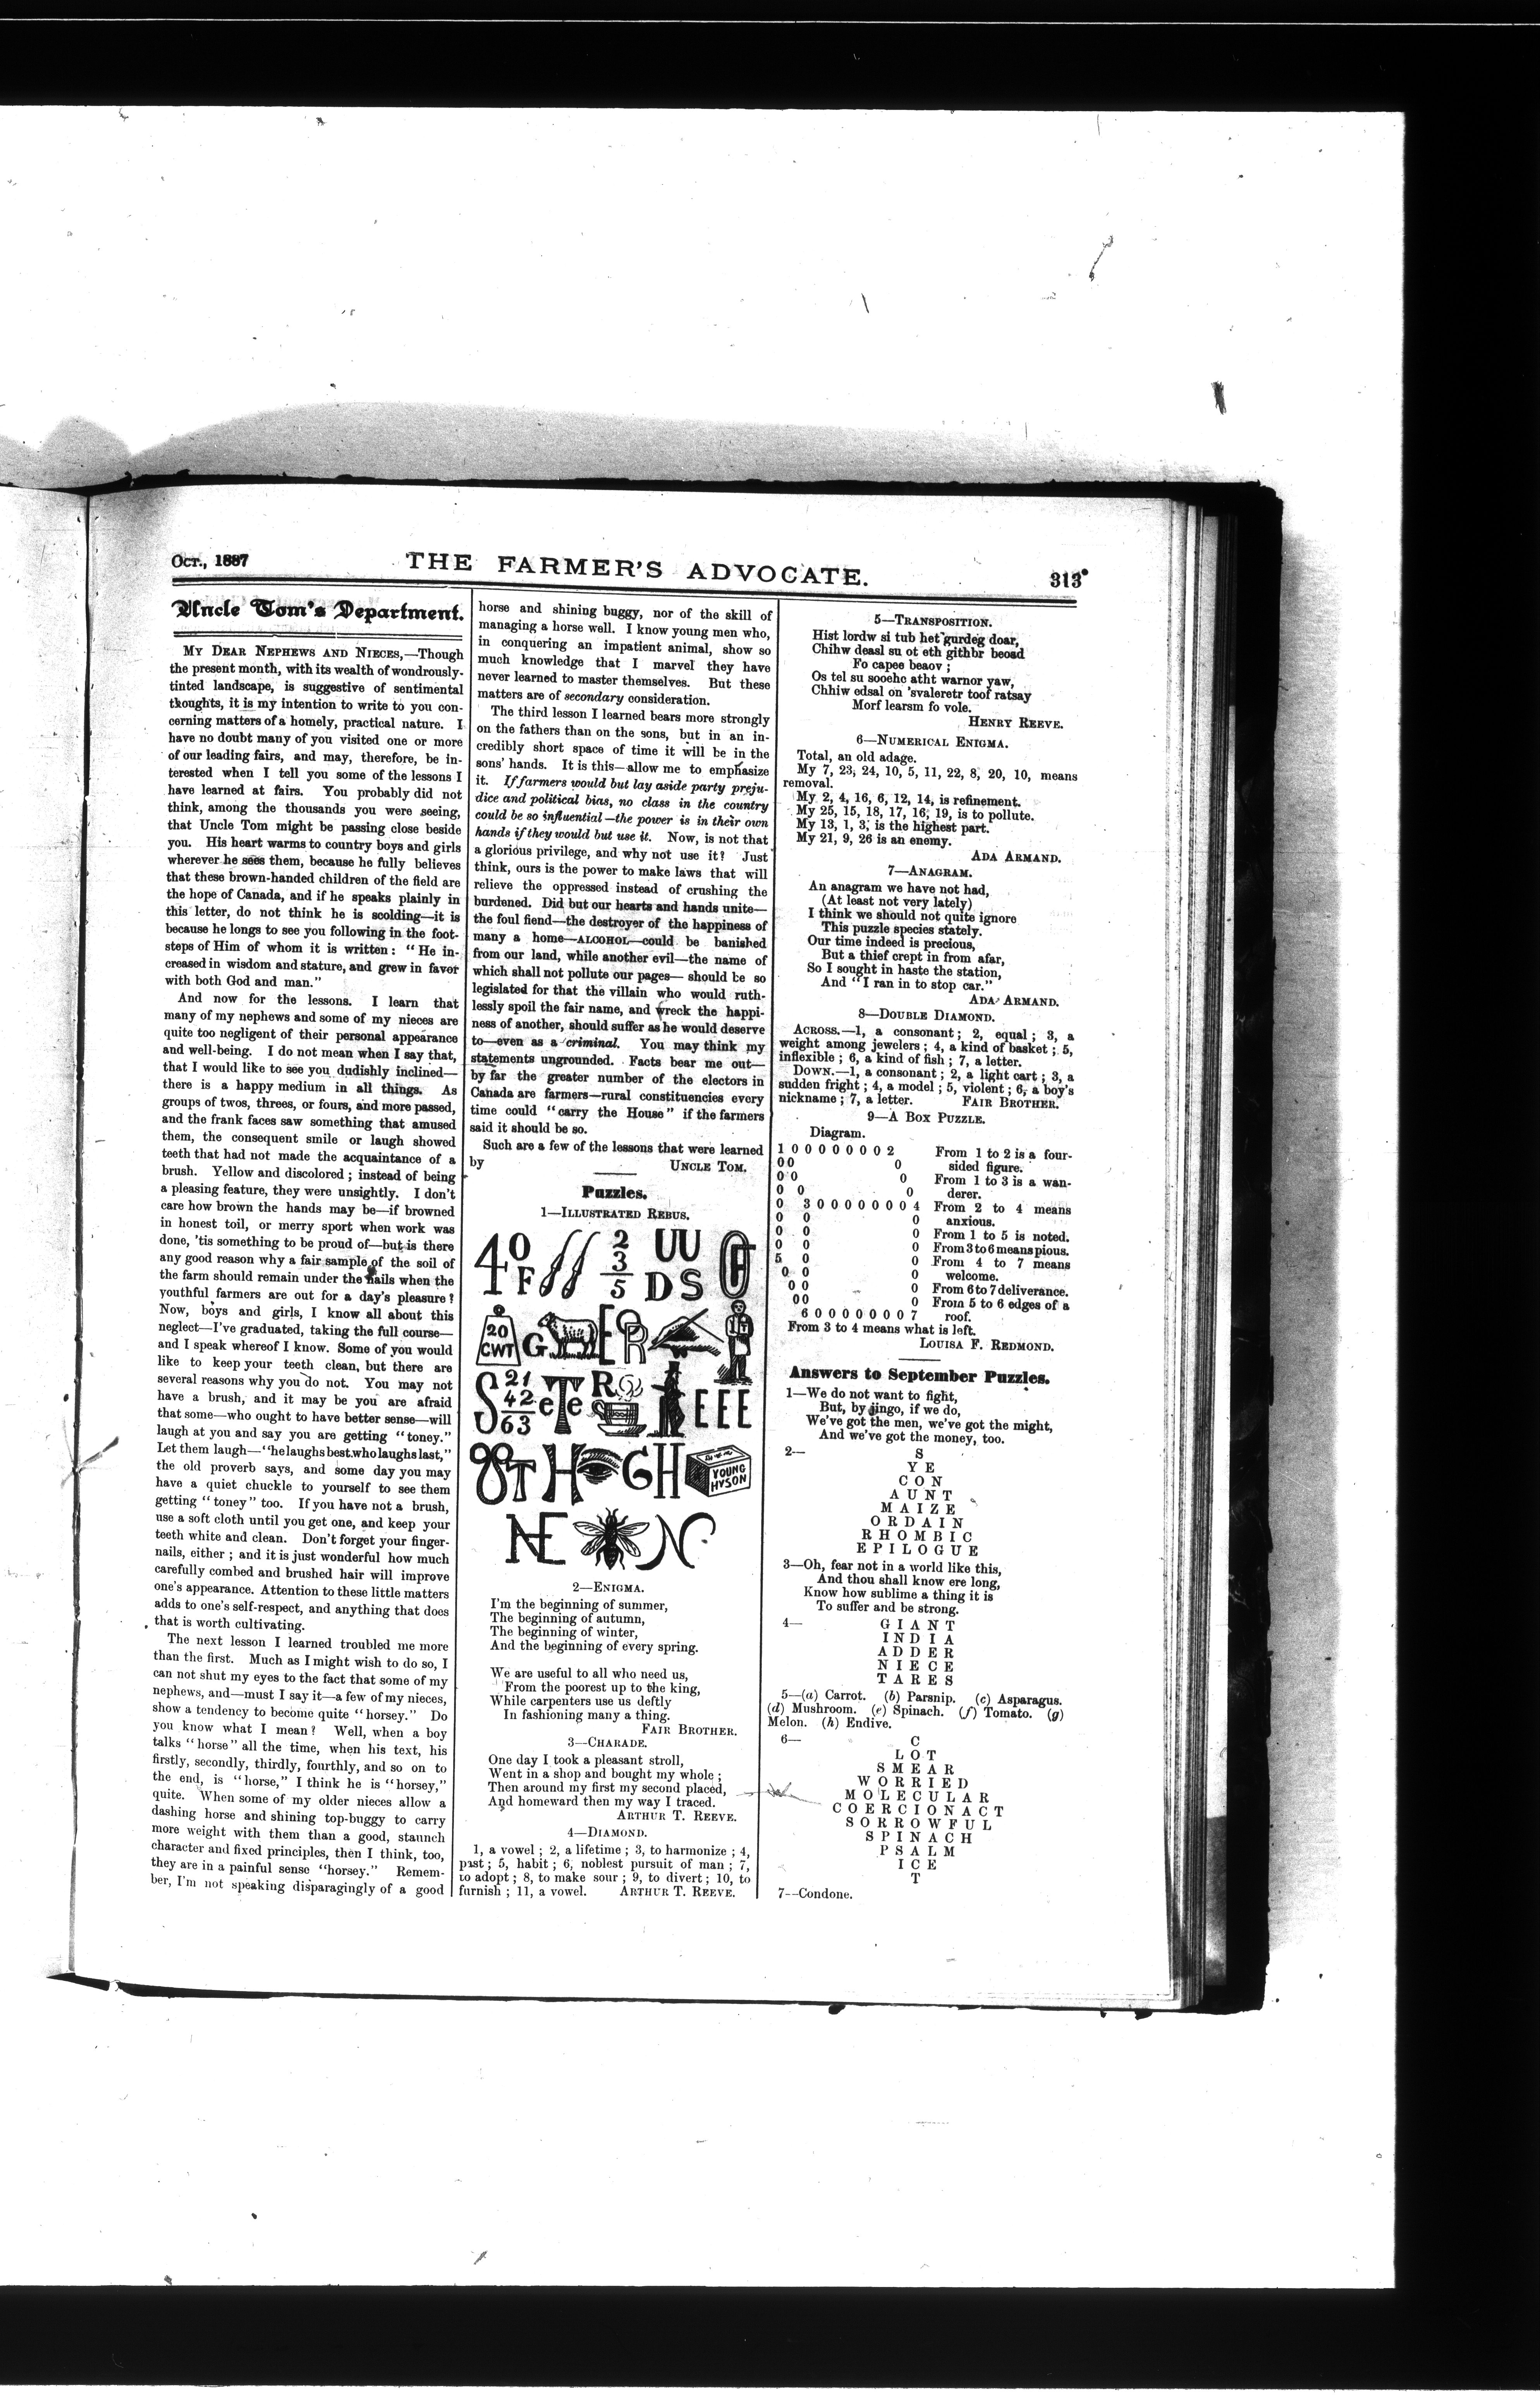 Oct., 1887
THE FARMER'S ADVOCATE.
313
Uncle Tom's Department.
MY DEAR NEPHEWS AND NIECES,—Though
the present month, with its wealth of wondrously-
tinted landscape, is suggestive of sentimental
thoughts, it is my intention to write to you con-
cerning matters of a homely, practical nature. I
have no doubt many of you visited one or more
of our leading fairs, and may, therefore, be in-
terested when I tell you some of the lessons I
have learned at fairs. You probably did not
think, among the thousands you were seeing,
that Uncle Tom might be passing close beside
you. His heart warms to country boys and girls
wherever he sees them, because he fully believes
that these brown-handed children of the field are
the hope of Canada, and if he speaks plainly in
this letter, do not think he is scolding—it is
because he longs to see you following in the foot-
steps of Him of whom it is written: "He in-
creased in wisdom and stature, and grew in favor
with both God and man."
And now for the lessons. I learn that
many of my nephews and some of my nieces are
quite too negligent of their personal appearance
and well-being. I do not mean when I say that,
that I would like to see you dudishly inclined—
there is a happy medium in all things. As
groups of twos, threes, or fours, and more passed,
and the frank faces saw something that amused
them, the consequent smile or laugh showed
teeth that had not made the acquaintance of a
brush. Yellow and discolored; instead of being
a pleasing feature, they were unsightly. I don't
care how brown the hands may be—if browned
in honest toil, or merry sport when work was
done, 'tis something to be proud of—but is there
any good reason why a fair sample of the soil of
the farm should remain under the nails when the
youthful farmers are out for a day's pleasure?
Now, boys and girls, I know all about this
neglect—I've graduated, taking the full course—
and I speak whereof I know. Some of you would
like to keep your teeth clean, but there are
several reasons why you do not. You may not
have a brush, and it may be you are afraid
that some—who ought to have better sense—will
laugh at you and say you are getting "toney."
Let them laugh—"he laughs best who laughs last,"
the old proverb says, and some day you may
have a quiet chuckle to yourself to see them
getting "toney" too. If you have not a brush,
use a soft cloth until you get one, and keep your
teeth white and clean. Don't forget your finger-
nails, either; and it is just wonderful how much
carefully combed and brushed hair will improve
one's appearance. Attention to these little matters
adds to one's self-respect, and anything that does
that is worth cultivating.
The next lesson I learned troubled me more
than the first. Much as I might wish to do so, I
can not shut my eyes to the fact that some of my
nephews, and—must I say it—a few of my nieces,
show a tendency to become quite "horsey." Do
you know what I mean? Well, when a boy
talks "horse" all the time, when his text, his
firstly, secondly, thirdly, fourthly, and so on to
the end, is "horse," I think he is "horsey,"
quite. When some of my older nieces allow a
dashing horse and shining top-buggy to carry
more weight with them than a good, staunch
character and fixed principles, then I think, too,
they are in a painful sense "horsey." Remem-
ber, I'm not speaking disparagingly of a good
horse and shining buggy, nor of the skill of
managing a horse well. I know young men who,
in conquering an impatient animal, show so
much knowledge that I marvel they have
never learned to master themselves. But these
matters are of secondary consideration.
The third lesson I learned bears more strongly
on the fathers than on the sons, but in an in-
credibly short space of time it will be in the
sons' hands. It is this—allow me to emphasize
it. If farmers would but lay aside party preju-
dice and political bias, no class in the country
could be so influential—the power is in their own
hands if they would but use it. Now, is not that
a glorious privilege, and why not use it? Just
think, ours is the power to make laws that will
relieve the oppressed instead of crushing the
burdened. Did but our hearts and hands unite—
the foul fiend—the destroyer of the happiness of
many a home—ALCOHOL—could be banished
from our land, while another evil—the name of
which shall not pollute our pages—should be so
legislated for that the villain who would ruth-
lessly spoil the fair name, and wreck the happi-
ness of another, should suffer as he would deserve
to—even as a criminal. You may think my
statements ungrounded. Facts bear me out—
by far the greater number of the electors in
Canada are farmers—rural constituencies every
time could "carry the House" if the farmers
said it should be so.
Such are a few of the lessons that were learned
by UNCLE TOM.
Puzzles.
1—ILLUSTRATED REBUS.
4 O F 2 3 5 UU D S
20 CWT G E R IT
S 21 42 63 e T e R EEE
8 T H GH YOUNG HYSON
NE N
2—ENIGMA.
I'm the beginning of summer,
The beginning of autumn,
The beginning of winter,
And the beginning of every spring.
We are useful to all who need us,
From the poorest up to the king,
While carpenters use us deftly
In fashioning many a thing.
FAIR BROTHER.
3—CHARADE.
One day I took a pleasant stroll,
Went in a shop and bought my whole;
Then around my first my second placed,
And homeward then my way I traced.
ARTHUR T. REEVE.
4—DIAMOND.
1, a vowel; 2, a lifetime; 3, to harmonize; 4,
past; 5, habit; 6, noblest pursuit of man; 7,
to adopt; 8, to make sour; 9, to divert; 10, to
furnish; 11, a vowel. ARTHUR T. REEVE.
5—TRANSPOSITION.
Hist lordw si tub het gurdeg doar,
Chihw deasl su ot eth githbr beoad
Fo capee beaov;
Os tel su sooehc atht warnor yaw,
Chhiw edsal on 'svaleretr toof ratsay
Morf learsm fo vole.
HENRY REEVE.
6—NUMERICAL ENIGMA.
Total, an old adage.
My 7, 23, 24, 10, 5, 11, 22, 8, 20, 10, means
removal.
My 2, 4, 16, 6, 12, 14, is refinement.
My 25, 15, 18, 17, 16, 19, is to pollute.
My 13, 1, 3, is the highest part.
My 21, 9, 26 is an enemy.
ADA ARMAND.
7—ANAGRAM.
An anagram we have not had,
(At least not very lately)
I think we should not quite ignore
This puzzle species stately.
Our time indeed is precious,
But a thief crept in from afar,
So I sought in haste the station,
And "I ran in to stop car."
ADA ARMAND.
8—DOUBLE DIAMOND.
ACROSS.—1, a consonant; 2, equal; 3, a
weight among jewelers; 4, a kind of basket; 5,
inflexible; 6, a kind of fish; 7, a letter.
DOWN.—1, a consonant; 2, a light cart; 3, a
sudden fright; 4, a model; 5, violent; 6, a boy's
nickname; 7, a letter. FAIR BROTHER.
9—A BOX PUZZLE.
Diagram.
1 0 0 0 0 0 0 0 2 From 1 to 2 is a four-
0 0 0 sided figure.
0 0 0 From 1 to 3 is a wan-
0 0 0 derer.
0 3 0 0 0 0 0 0 0 4 From 2 to 4 means
0 0 0 anxious.
0 0 0 From 1 to 5 is noted.
0 0 0 From 3 to 6 means pious.
5 0 0 From 4 to 7 means
0 0 0 welcome.
0 0 0 From 6 to 7 deliverance.
0 0 0 From 5 to 6 edges of a
6 0 0 0 0 0 0 0 7 roof.
From 3 to 4 means what is left.
LOUISA F. REDMOND.
Answers to September Puzzles.
1—We do not want to fight,
But, by jingo, if we do,
We've got the men, we've got the might,
And we've got the money, too.
2— S
Y E
C O N
A U N T
M A I Z E
O R D A I N
R H O M B I C
E P I L O G U E
3—Oh, fear not in a world like this,
And thou shall know ere long,
Know how sublime a thing it is
To suffer and be strong.
4— G I A N T
I N D I A
A D D E R
N I E C E
T A R E S
5—(a) Carrot. (b) Parsnip. (c) Asparagus.
(d) Mushroom. (e) Spinach. (f) Tomato. (g)
Melon. (h) Endive.
6— C
L O T
S M E A R
W O R R I E D
M O L E C U L A R
C O E R C I O N A C T
S O R R O W F U L
S P I N A C H
P S A L M
I C E
T
7—Condone.